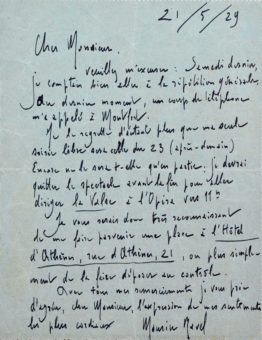 21/5/29
Cher Monsieur.
veuillez m'excuser : Samedi dernier,
je comptais bien aller à la répétition générale.
Au dernier moment, un coup de téléphone
m'a appelé à Montfort.
Je le regrette d'autant plus que ma seule
soirée libre sera celle du 23 (après-demain)
Encore ne le sera-t-elle qu'en partie. je devrai
quitter le spectacle avant la fin pour aller
diriger la Valse à l'Opéra vers 11h
Je vous serais donc très reconnaissant
de me faire parvenir une place à l'Hôtel
d'Athènes, rue d'Athènes, 21, ou plus simple-
ment de la faire déposer au contrôle.
Avec tous mes remerciements je vous prie
d'agréer, cher Monsieur, l'expression de mes sentiments
les plus cordiaux
Maurice Ravel